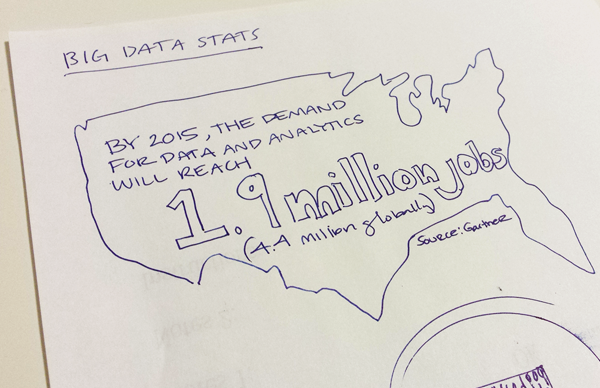 BIG DATA STATS
BY 2015, THE DEMAND
FOR DATA AND ANALYTICS
WILL REACH
1.9 million jobs
(4.4 million globally)
Source: Gartner